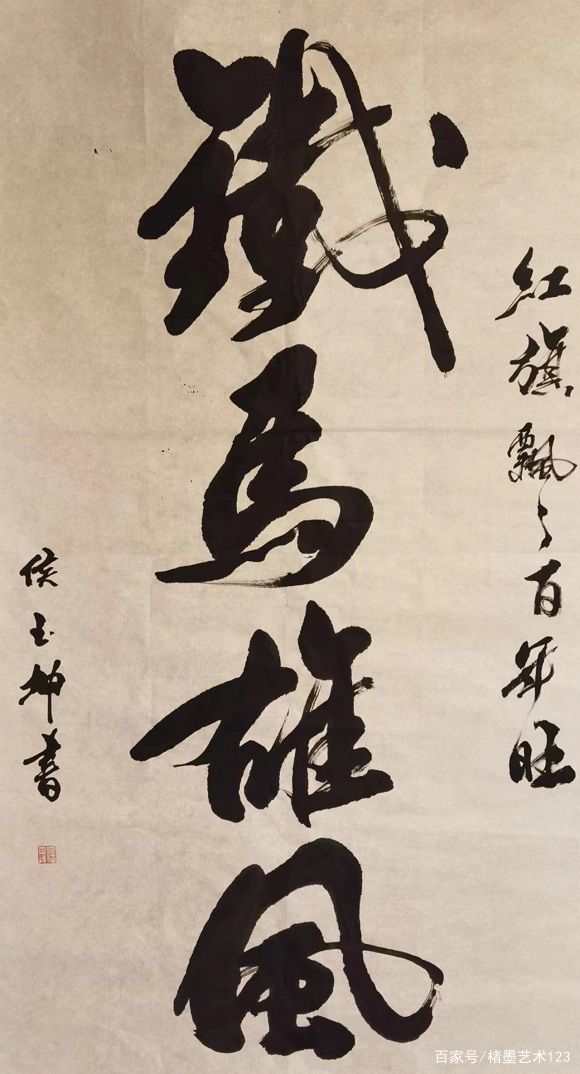 紅旗飄々百年旺
鐵馬雄風
侯玉坤書
百家号/楮墨艺术123